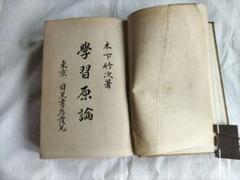 木下竹次著
學習原論
東京 目黒書店發兌